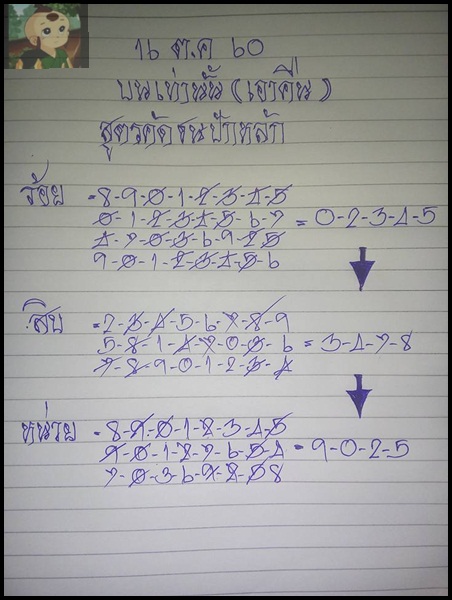 16 ต.ค 60
บนเท่านั้น (เอาคืน)
สูตรคัดชนป้าหล้า
ร้อย = 8-9-0-1-2-3-4-5
0-1-2-3-4-5-6-7 = 0-2-3-4-5
4-7-0-3-6-9-2-5
9-0-1-2-3-4-5-6
สิบ = 2-3-4-5-6-7-8-9
5-8-1-4-7-0-3-6 = 3-4-7-8
7-8-9-0-1-2-3-4
หน่วย = 8-9-0-1-2-3-4-5
9-0-1-2-7-6-5-4 = 9-0-2-5
7-0-3-6-9-2-5-8